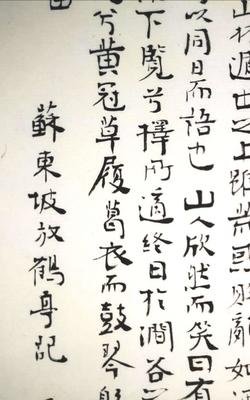 山林遁世之士雖荒惑敗亂如
以同日而語也山人欣然而笑曰有
下覽兮擇所適終日於澗谷
兮黃冠草履葛衣而鼓琴躬
蘇東坡放鶴亭記